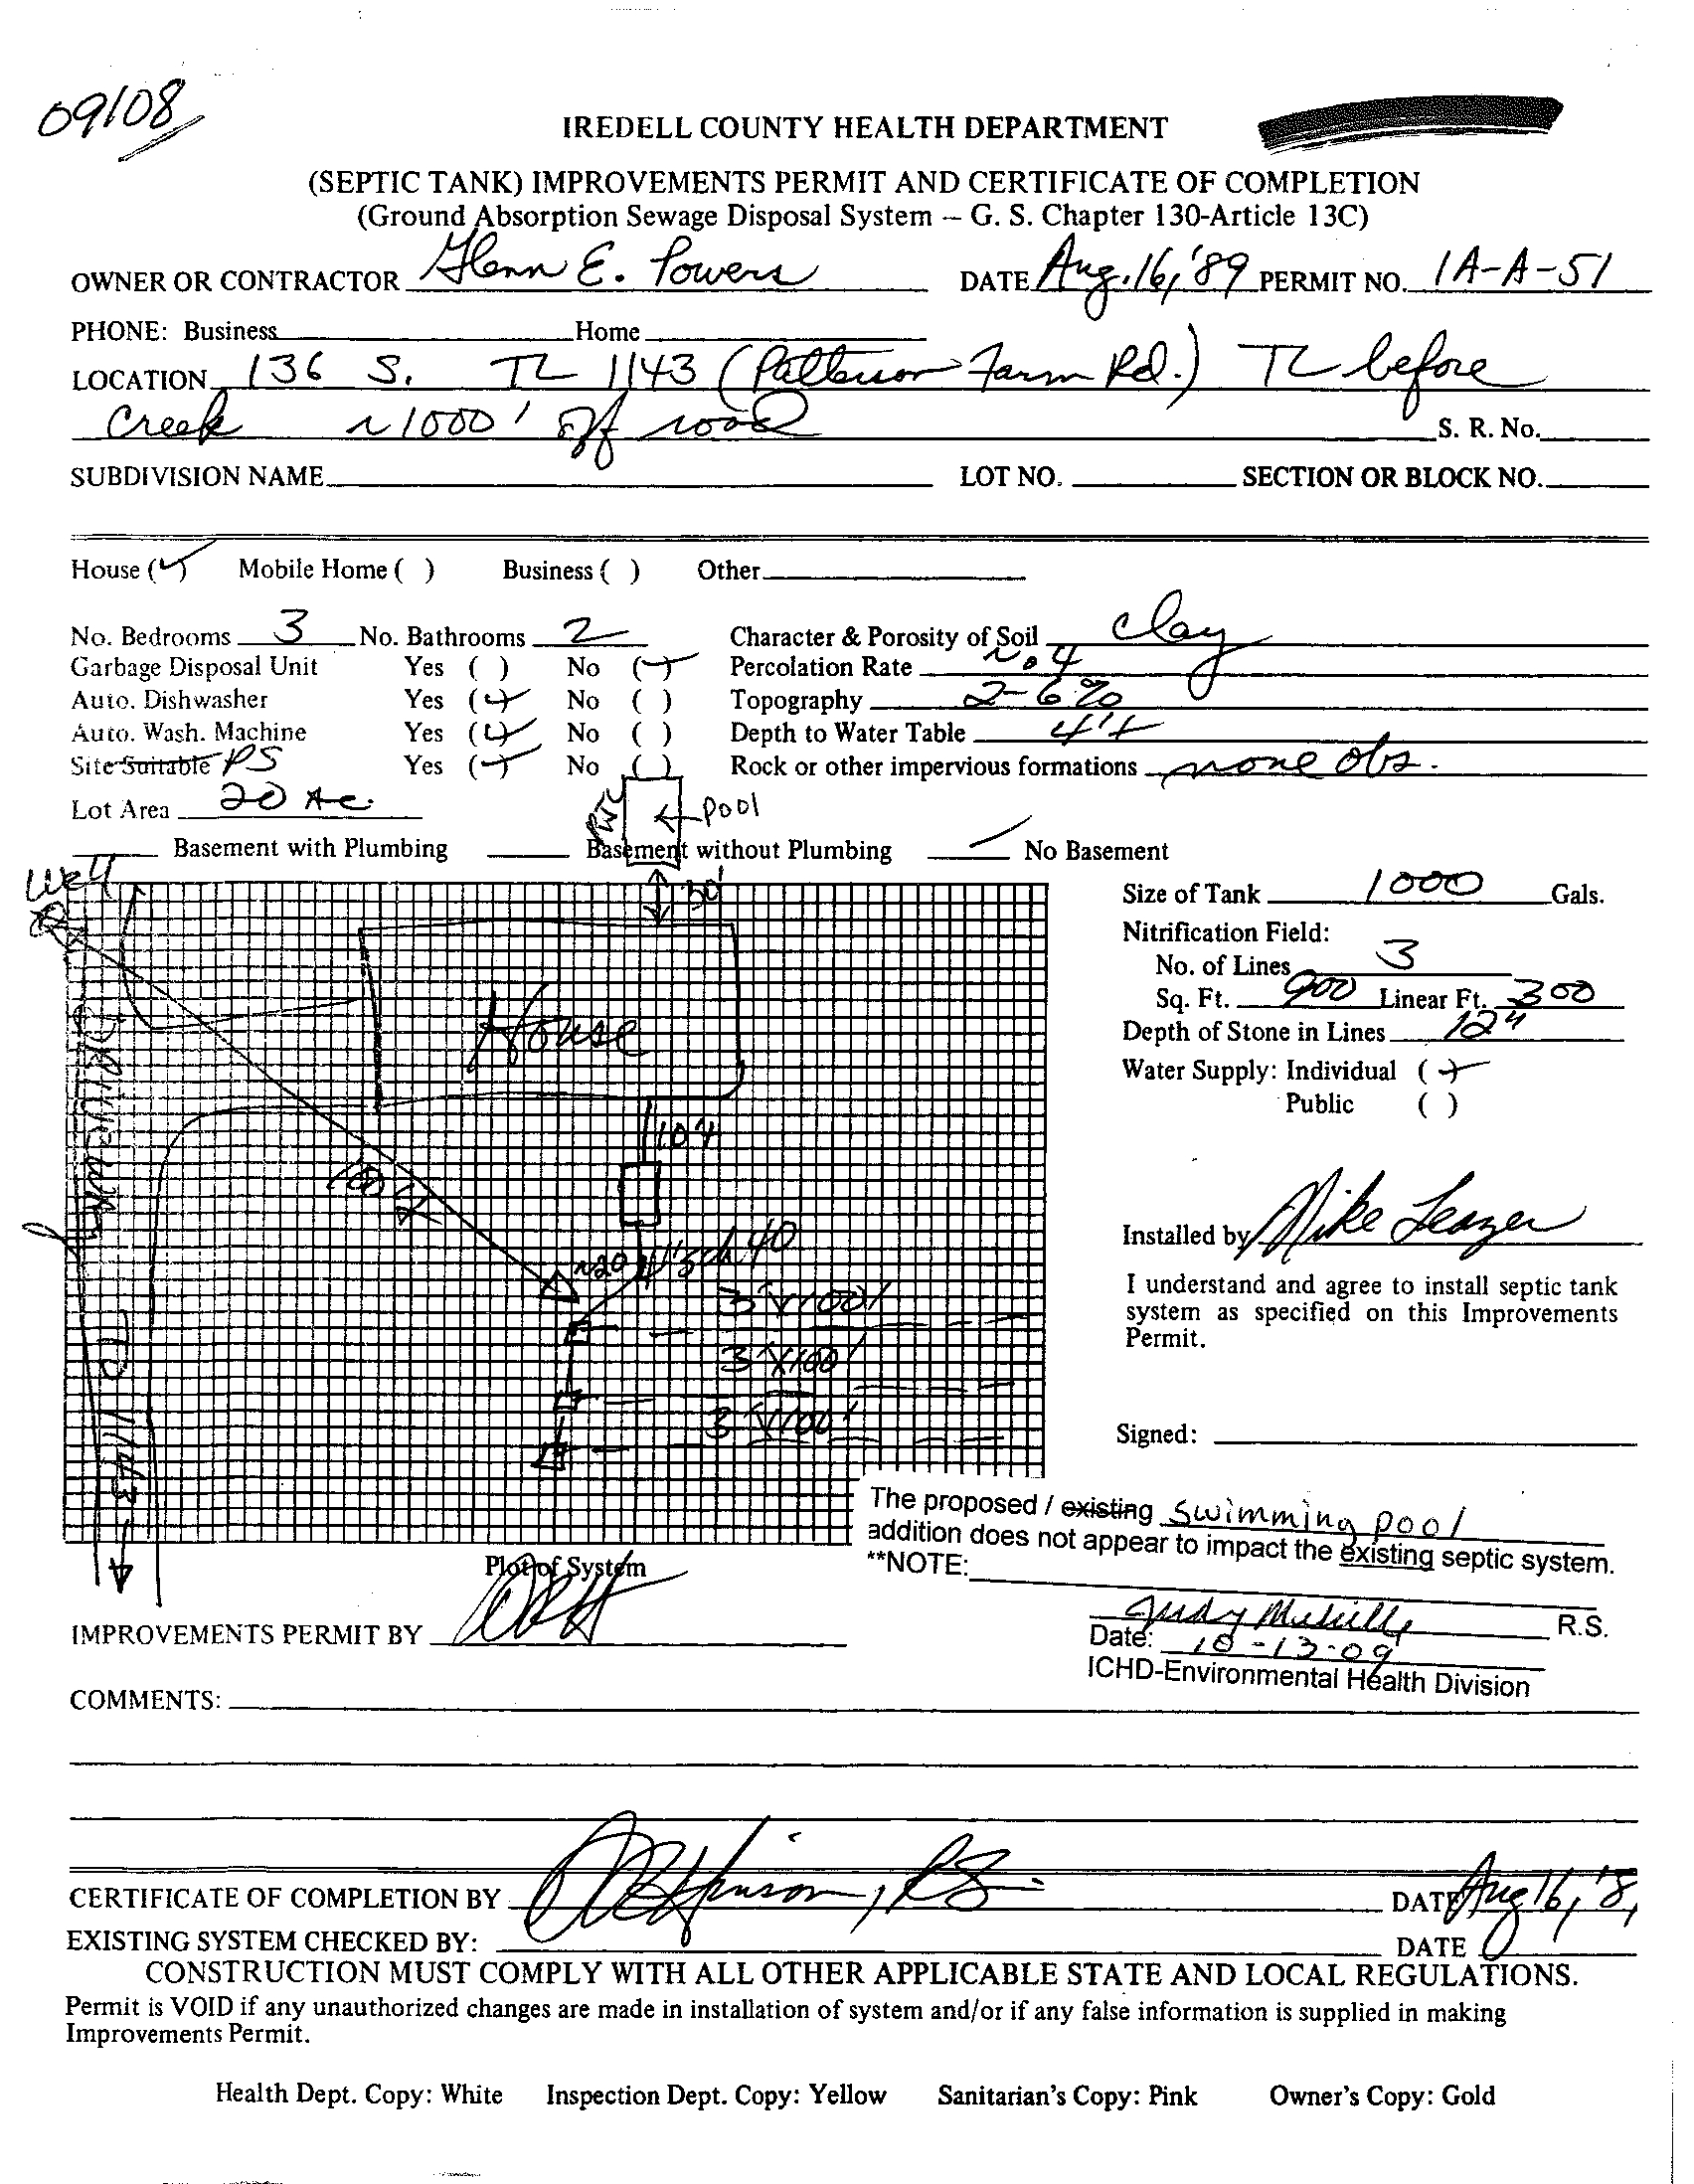 09108
IREDELL COUNTY HEALTH DEPARTMENT
(SEPTIC TANK) IMPROVEMENTS PERMIT AND CERTIFICATE OF COMPLETION
(Ground Absorption Sewage Disposal System – G. S. Chapter 130-Article 13C)
OWNER OR CONTRACTOR Glenn E. Powers DATE Aug. 16, '89 PERMIT NO. 1A-A-51
PHONE: Business Home
LOCATION 136 S. TL 1143 (Patterson Farm Rd.) TL before
Creek ~1000' off road S. R. No.
SUBDIVISION NAME LOT NO. SECTION OR BLOCK NO.
House (✓) Mobile Home ( ) Business ( ) Other
No. Bedrooms 3 No. Bathrooms 2 Character & Porosity of Soil clay
Garbage Disposal Unit Yes ( ) No (✓) Percolation Rate ~.4
Auto. Dishwasher Yes (✓) No ( ) Topography 2-6%
Auto. Wash. Machine Yes (✓) No ( ) Depth to Water Table 4'+
Site Suitable PS Yes (✓) No ( ) Rock or other impervious formations none obs.
Lot Area 20 Ac. pool
Basement with Plumbing Basement without Plumbing ✓ No Basement
Well 30'
Size of Tank 1000 Gals.
Nitrification Field:
No. of Lines 3
Sq. Ft. 900 Linear Ft. 300
Depth of Stone in Lines 12"
Water Supply: Individual (✓)
Public ( )
House
Driveway
10'+
100'+
~20' 4" sch 40
3'x100'
3'x100'
3'x100'
To 1143
Installed by Mike Leazer
I understand and agree to install septic tank
system as specified on this Improvements
Permit.
Signed:
The proposed / existing swimming pool
addition does not appear to impact the existing septic system.
**NOTE:
Plot of System
Judy R.S.
IMPROVEMENTS PERMIT BY
Date: 10-13-09
ICHD-Environmental Health Division
COMMENTS:
CERTIFICATE OF COMPLETION BY RS DATE Aug 16, '8
EXISTING SYSTEM CHECKED BY: DATE
CONSTRUCTION MUST COMPLY WITH ALL OTHER APPLICABLE STATE AND LOCAL REGULATIONS.
Permit is VOID if any unauthorized changes are made in installation of system and/or if any false information is supplied in making
Improvements Permit.
Health Dept. Copy: White Inspection Dept. Copy: Yellow Sanitarian's Copy: Pink Owner's Copy: Gold